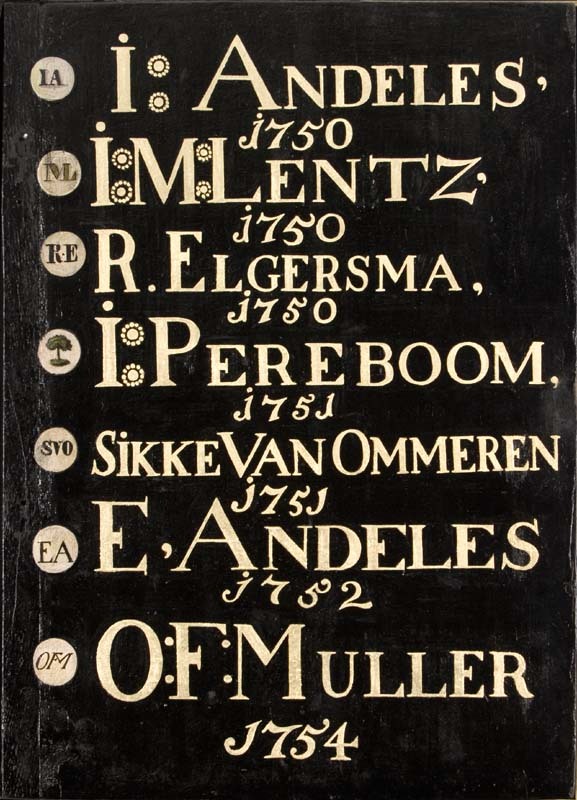 IA I: ANDELES,
1750
IML I:M:LENTZ,
1750
R·E R. ELGERSMA,
1750
I:PEREBOOM,
1751
SVO SIKKE VAN OMMEREN
1751
EA E, ANDELES
1752
OFM O:F:MULLER
1754